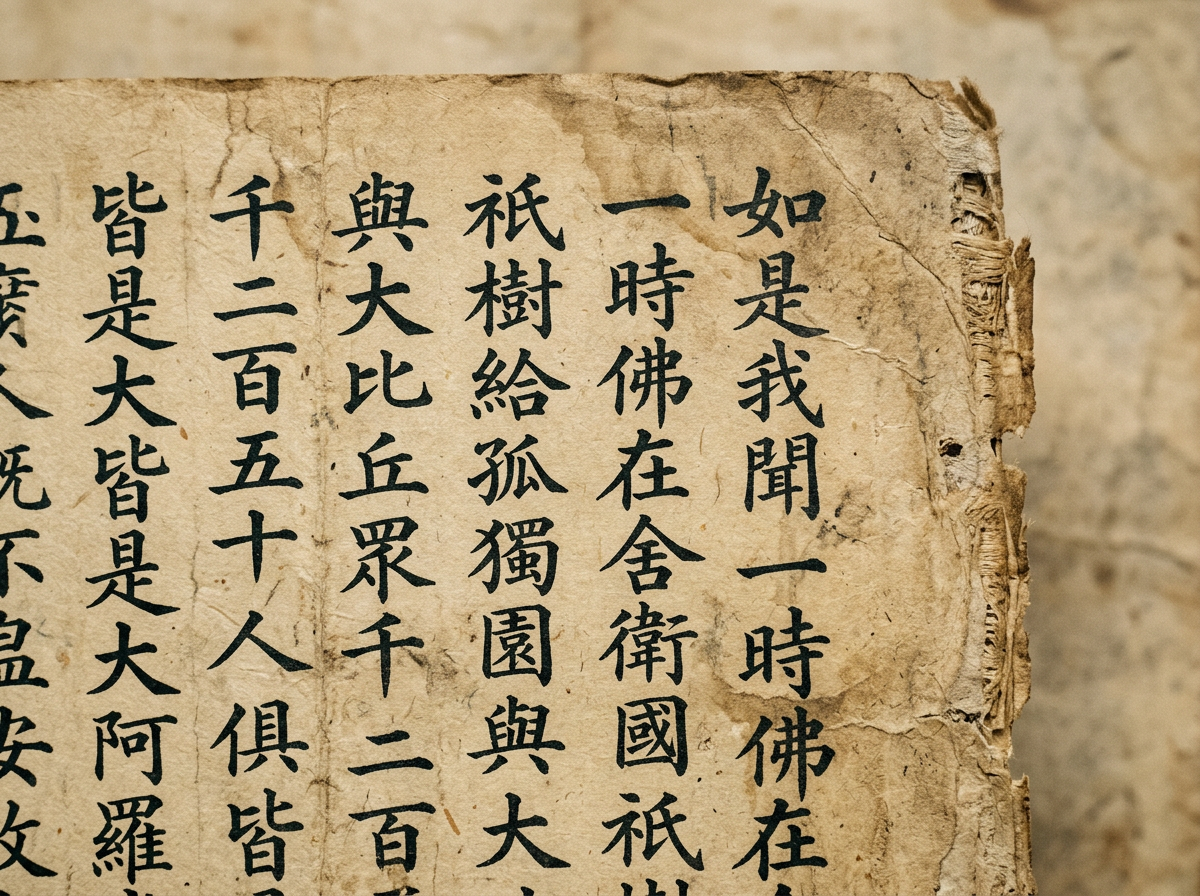 如是我聞一時佛在
一時佛在舍衛國祇
祇樹給孤獨園與大
與大比丘眾千二百
千二百五十人俱皆
皆是大皆是大阿羅